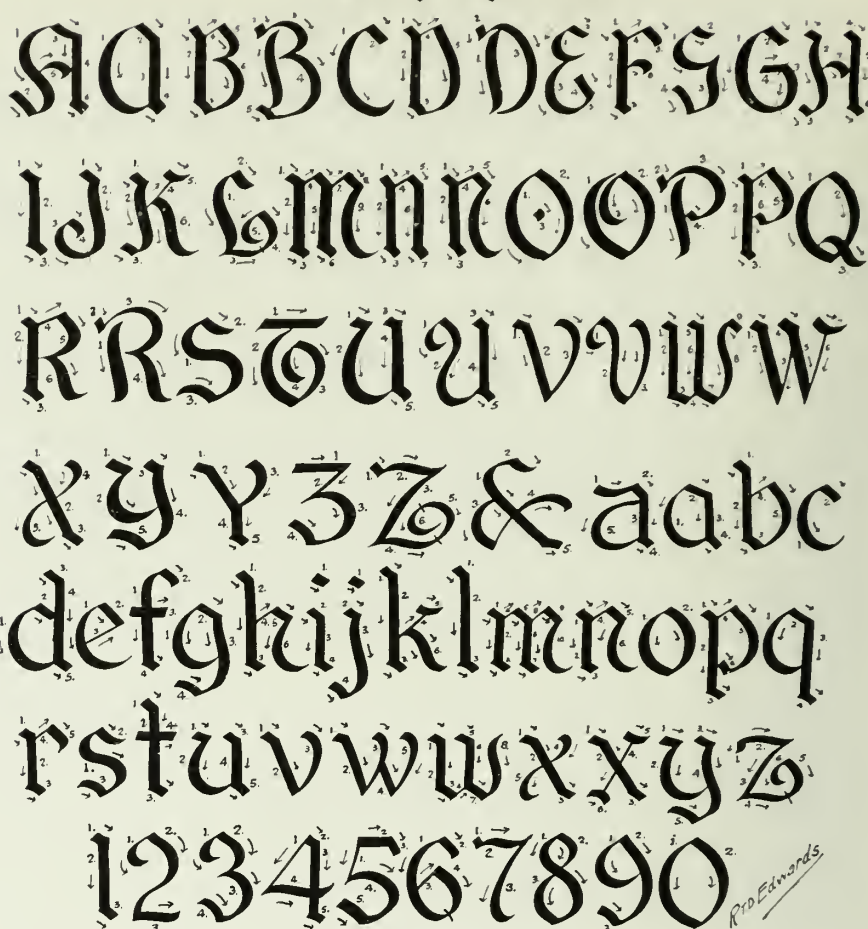 A A B B C D D E F G G H
I J K L M N N O O P P Q
R R S T U U V V W W
X Y Y Z Z & a a b c
d e f g h i j k l m n o p q
r s t u v w w x x y z
1 2 3 4 5 6 7 8 9 0
R.T.D Edwards.